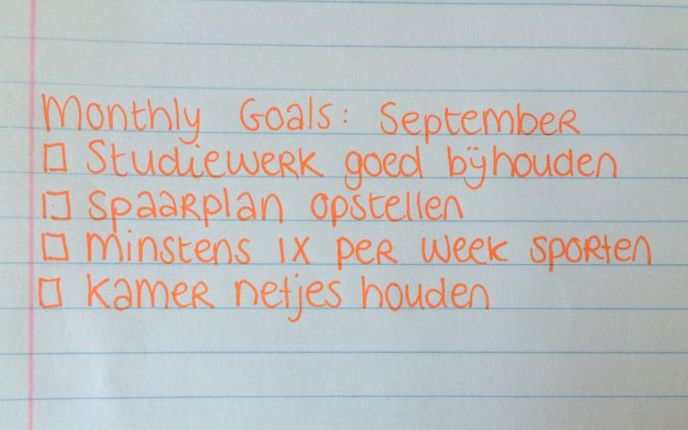 Monthly Goals: September
□ Studiewerk goed bijhouden
□ Spaarplan opstellen
□ Minstens 1x per week sporten
□ Kamer netjes houden